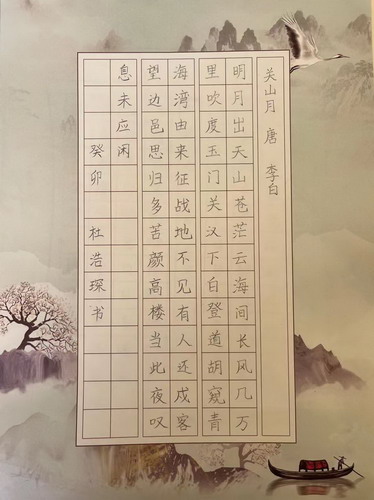 关山月 唐 李白
明月出天山苍茫云海间长风几万
里吹度玉门关汉下白登道胡窥青
海湾由来征战地不见有人还戍客
望边邑思归多苦颜高楼当此夜叹
息未应闲
癸卯 杜浩琛书